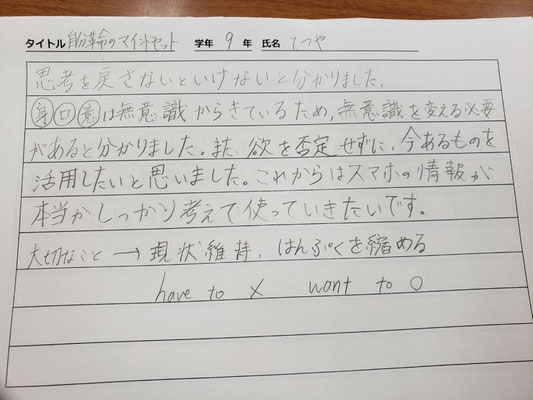 タイトル 自分革命のマインドセット 学年 9 年 氏名 てつや
思考を戻さないといけないと分かりました。
身 口 意 は無意識からきているため、無意識を変える必要
があると分かりました。また、欲を否定せずに、今あるものを
活用したいと思いました。これからはスマホの情報が
本当かしっかり考えて使っていきたいです。
大切なこと → 現状維持、はんぷくを縮める
have to × want to ○